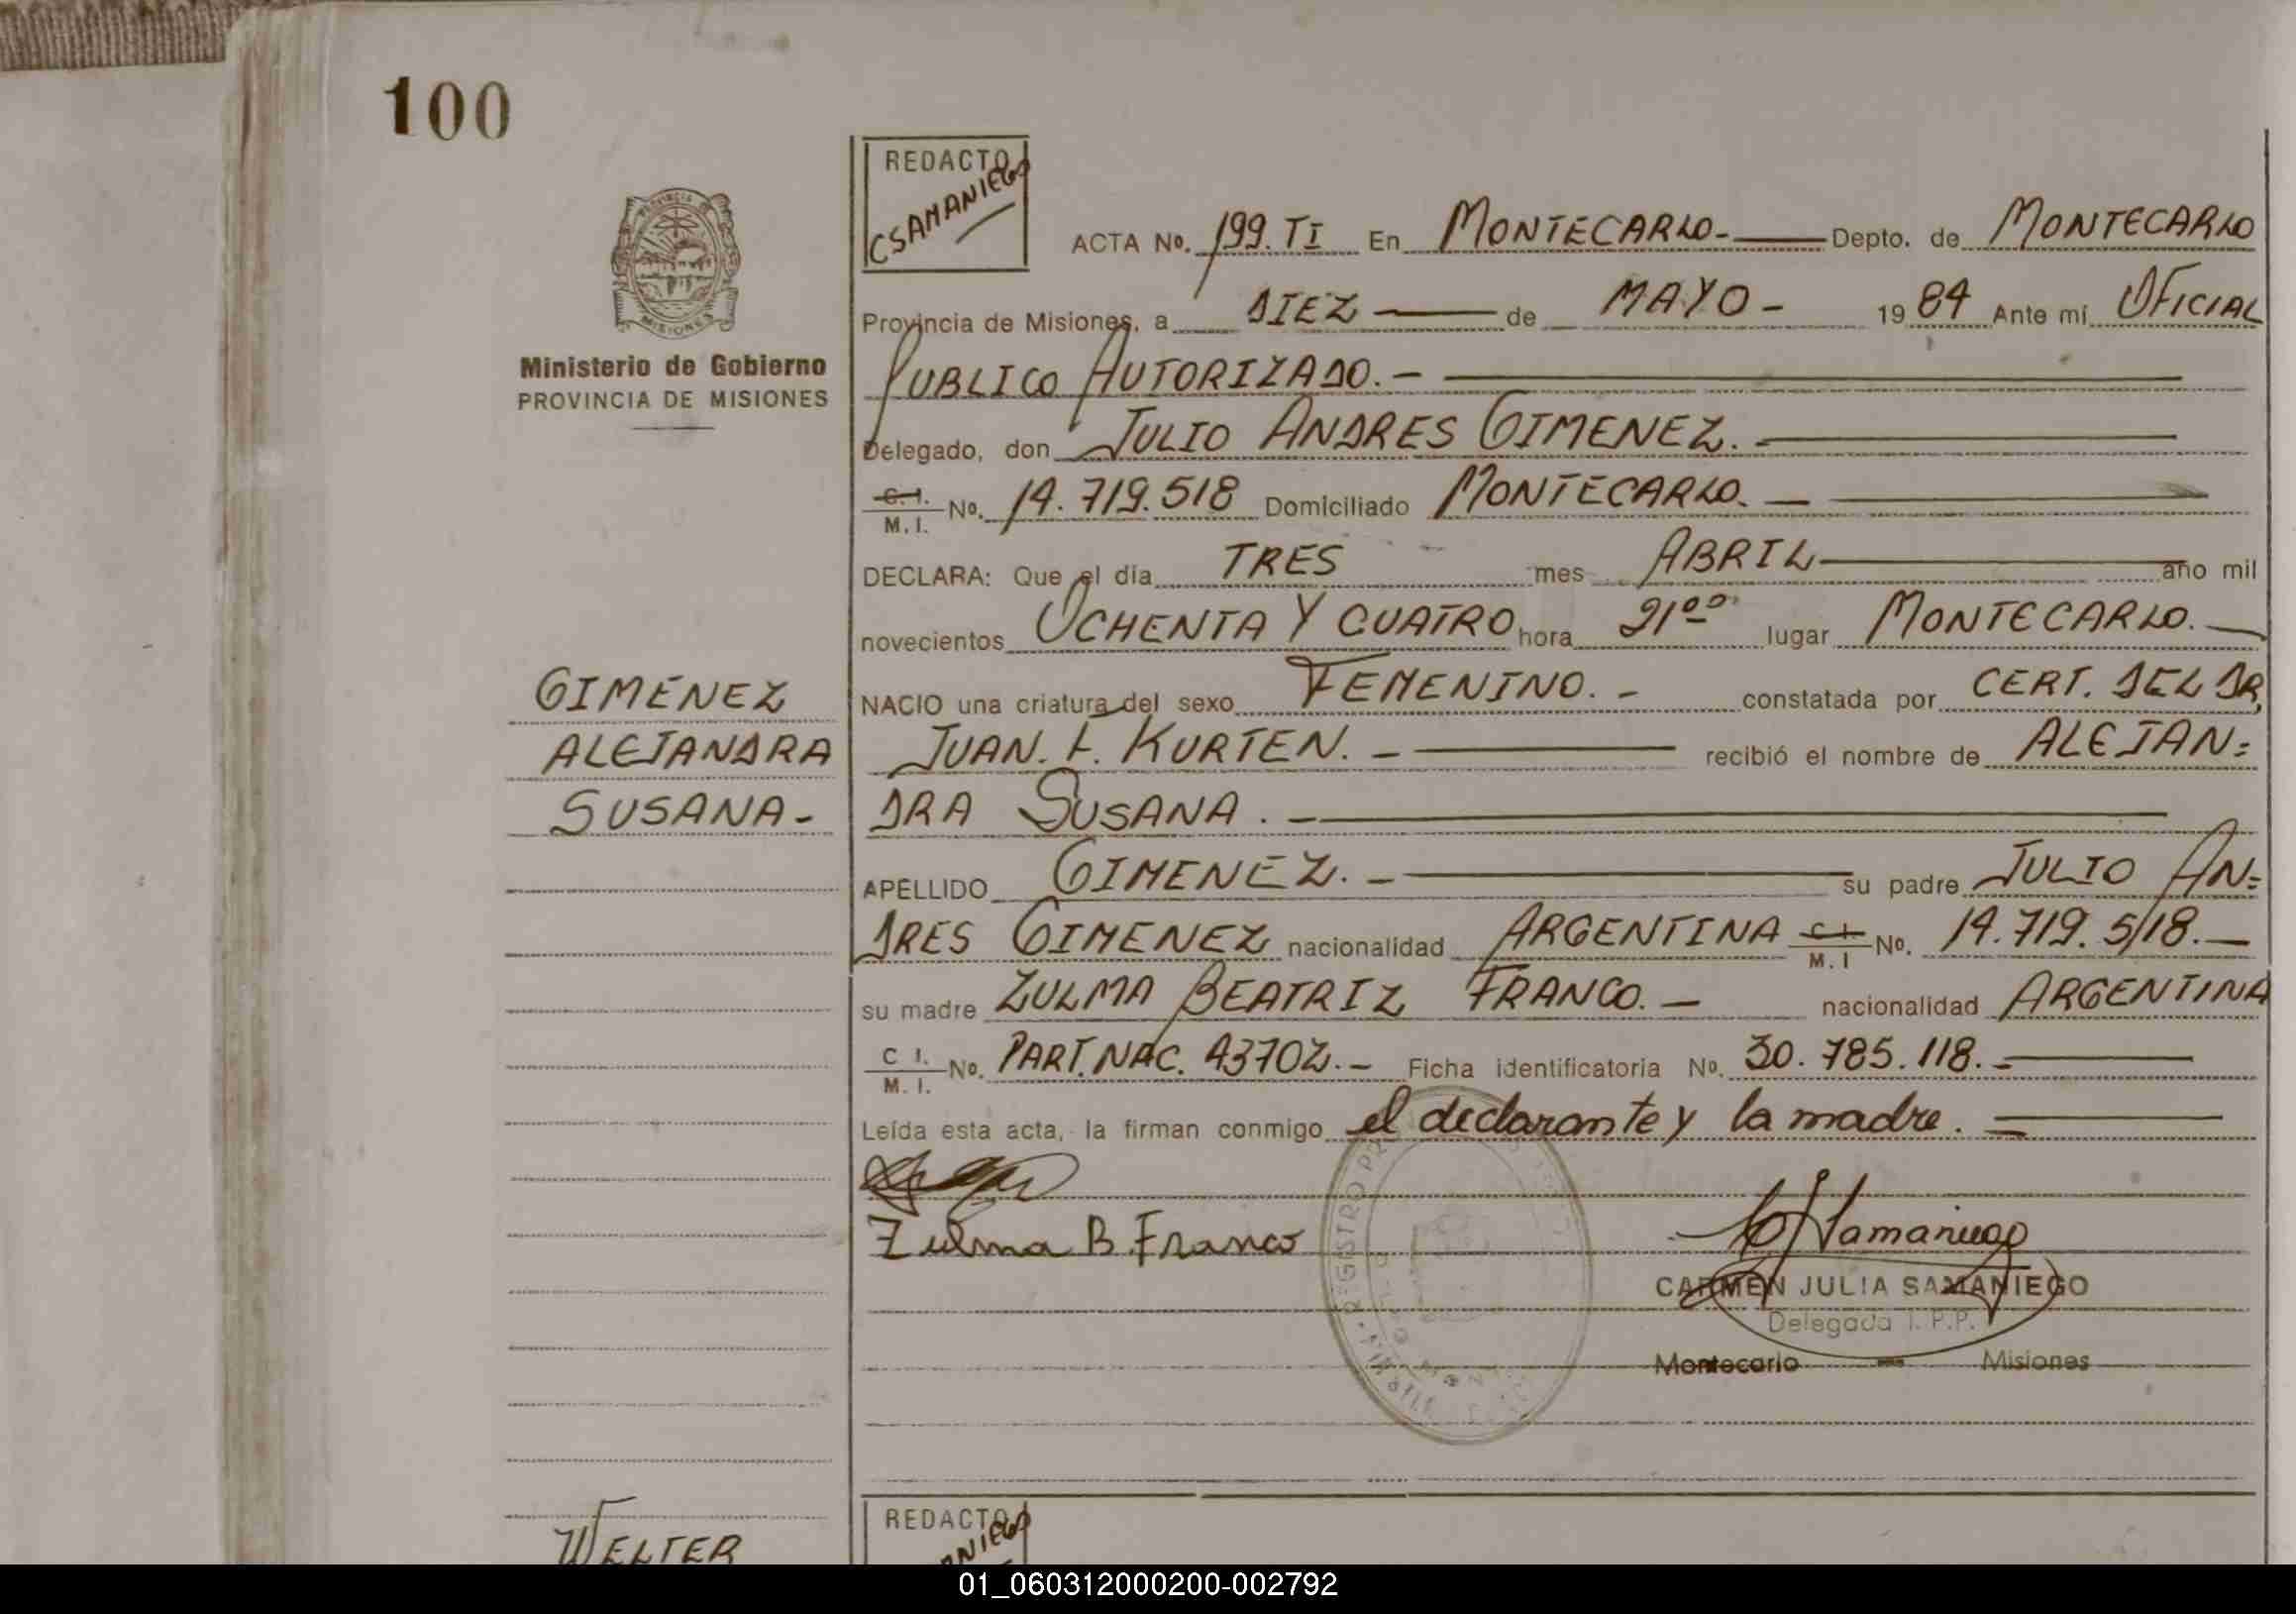 100
REDACTO
CSAMANIEGO
PROVINCIA DE
MISIONES
Ministerio de Gobierno
PROVINCIA DE MISIONES
ACTA No. 199. TI En MONTECARLO.- Depto. de MONTECARLO
Provincia de Misiones, a DIEZ de MAYO - 1984 Ante mí OFICIAL
PUBLICO AUTORIZADO. -
Delegado, don JULIO ANDRES GIMENEZ.
C. I.
M. I. No. 14.719.518 Domiciliado MONTECARLO. -
DECLARA: Que el día TRES mes ABRIL año mil
novecientos OCHENTA Y CUATRO hora 21ºº lugar MONTECARLO. -
NACIO una criatura del sexo FEMENINO. - constatada por CERT. DEL DR,
JUAN. F. KURTEN. - recibió el nombre de ALEJAN=
DRA SUSANA. -
GIMENEZ
ALEJANDRA
SUSANA-
APELLIDO GIMENEZ. - su padre JULIO AN=
DRES GIMENEZ nacionalidad ARGENTINA C I.
M. I No. 14.719.518. -
su madre ZULMA BEATRIZ FRANCO. - nacionalidad ARGENTINA
C I.
M. I. No. PART. NAC. 43702. - Ficha identificatoria No. 30.785.118. -
Leída esta acta, la firman conmigo el declarante y la madre. -
Zulma B. Franco
Samaniego
CARMEN JULIA SAMANIEGO
Delegada I. P.P.
Montecarlo - Misiones
REGISTRO
REDACTO
WELTER
01_060312000200-002792